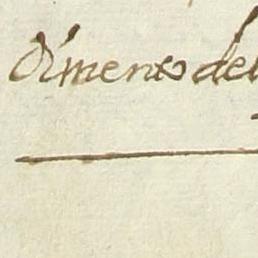 dimento del